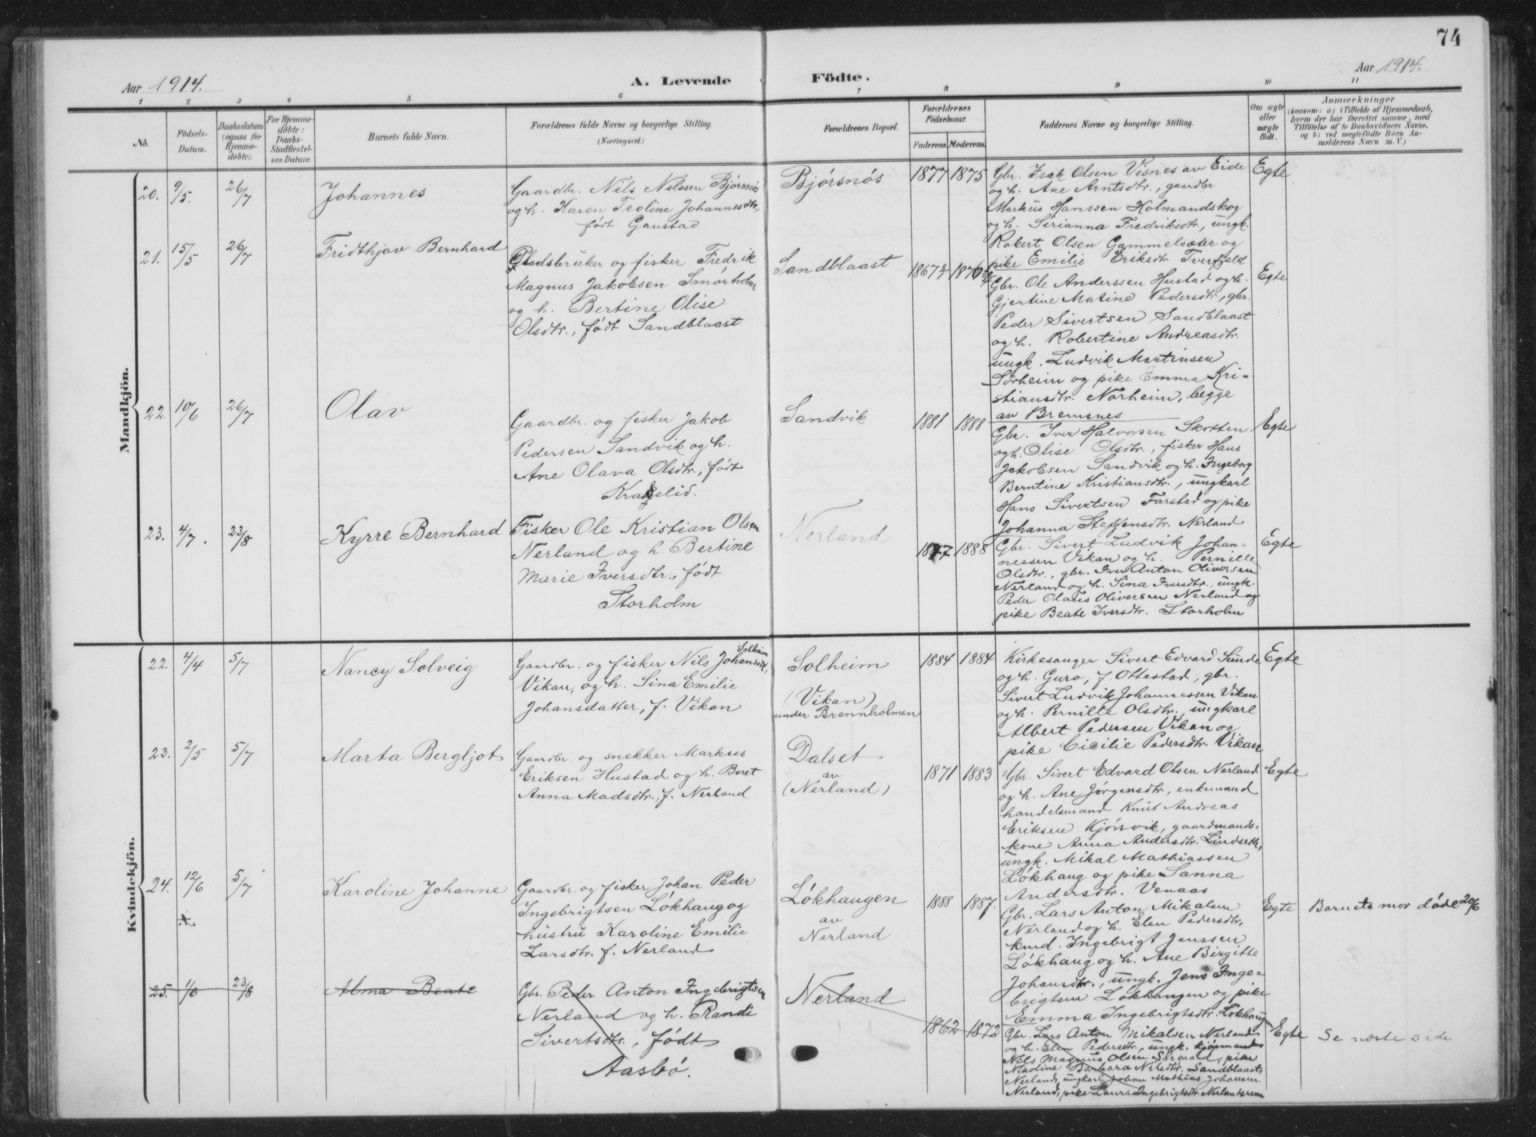 74
Aar 1914.
A. Levende Födte.
Aar 1914.
1 2 3 4 5 6 7 8 9 10 11
No.
Födsels-Datum.
Daabsdatum (ogsaa for Hjemmedøbte).
For Hjemmedøbte: Daabs-Stadfæstelses Datum.
Barnets fulde Navn.
Forældrenes fulde Navne og borgerlige Stilling.
(Næringsvei.)
Forældrenes Bopæl.
Forældrenes Födselsaar.
Faderens. Moderens.
Faddernes Navne og borgerlige Stilling.
Om ægte eller uægte födt.
Anmærkninger
Mandkjön.
20. 9/5. 26/7 Johannes
Gaardbr. Nils Nilssen Bjørsnös
og h. Karen Teoline Johannesdtr,
født Gaustad
Bjørsnös
1877 1875
Gbr. Isak Olsen Visnes av Eide
og h. Ane Arntsdtr., gaardbr
Markus Hanssen Holmandskog
og h. Sirianna Fredriksdtr, ungk.
Robert Olsen Gammelsæter og
pike Emilie Eriksdtr Tverfjeld
Egte
21. 15/5 26/7 Fridthjov Bernhard
Pladsbruker og fisker Fredrik
Magnus Jakobsen Smørholm
og h. Bertine Olise
Olsdtr., født Sandblaast
Sandblaast
Gbr. Ole Anderssen Hustad og h.
Gjertine Matine Pedersdtr, gbr.
Peder Sivertsen Sandblaast
og h. Robertine Andreasdtr.
ungk. Ludvik Martinsen
Sørheim og pike Emma Kri-
stiansdtr Norheim, begge
av Bremsnes
Egte
22. 10/6 26/7 Olav
Gaardbr. og fisker Jakob
Pedersen Sandvik og h.
Ane Olava Olsdtr., født
Sandvik
1881 1888
Gbr. Iver Halvorsen Skotten
og h. Olise Olsdtr, fisker Hans
Jakobsen Sandvik og h. Ingeborg
Berntine Kristiansdtr., ungkarl
Hans Sivertsen Farstad og pike
Johanna Steffensdtr. Nerland
Egte
23. 4/7. 23/8 Kyrre Bernhard
Fisker Ole Kristian Olsen
Nerland og h. Bertine
Marie Iversdtr., født
Storholm
Nerland
1877 1888
Gbr. Sivert Ludvik Johan-
nessen Vikan og h. Pernille
Olsdtr., gbr. Iver Anton Oliversen
Nerland og h. Sina Iversdtr. ungk.
Peder Olaus Oliversen Nerland og
pike Beate Iversdtr. Storholm
Egte
Kvindekjön.
22. 4/4 5/7 Nancy Solveig
Solheim
Gaardbr. og fisker Nils Johanssen,
Vikan, og h. Sina Emilie
Johansdatter, f. Vikan
Solheim
(Vikan)
under Brennholmen
1884 1884
Kirkesanger Sivert Edvard Sunde
og h. Guro, f Ottestad, gbr.
Sivert Ludvik Johannessen Vikan
og h. Pernille Olsdtr., ungkarl
Albert Pedersen Vikan og
pike Cicilie Pedersdtr. Vikan
Egte
23. 2/5 5/7 Marta Bergljot
Gaardbr. og snekker Markus
Eriksen Hustad og h. Beret
Anna Madsdtr., f. Nerland
Dalset
av
(Nerland)
1871 1883
Gbr. Sivert Edvard Olsen Nerland
og h. Ane Jørgensdtr, enkemand
handelsmand Knut Andreas
Eriksen Kjørsvik, gaardmands-
kone Anna Andersdtr. Lindseth,
ungk. Mikal Mathiassen
Løkhaug og pike Sanna
Andersdtr. Venaas
Egte
24. 12/6 5/7 Karoline Johanne
Gaardbr. og fisker Johan Peder
Ingebrigtsen Løkhaug og
hustru Karoline Emilie
Larsdtr. f. Nerland
Løkhaugen
av
Nerland
1888 1887
Gbr. Lars Anton Mikalsen
Nerland og h. Elen Pedersdtr,
kmd. Ingebrigt Jenssen
Løkhaug og h. Ane Birgitte
Johansdtr., ungk. Jens Inge-
brigtsen Løkhaugen og pike
Emma Ingebrigtsdtr. Løkhaugen
Egte
Barnets mor døde 20/6
25. 1/6 23/8 Alma Beate
Gbr. Peder Anton Ingebrigtsen
Nerland og h. Randi
Sivertsdtr., født
Aasbö.
Nerland
1862 1872
Gbr. Lars Anton Mikalsen Nerland
og h. Elen Pedersdtr, ungk. kjøpmand
Nils Magnus Olsen, pike
Madine Barbara Nilsdtr. Sandblaast
Nerland, ungkarl Johan Mathias Johansen
Nerland, pike Laura Ingebrigtsdtr. Nerland
Egte
Se næste side